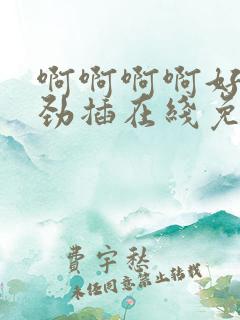 啊啊啊啊好
劲插在线免
费宇愁
未经同意禁止转载